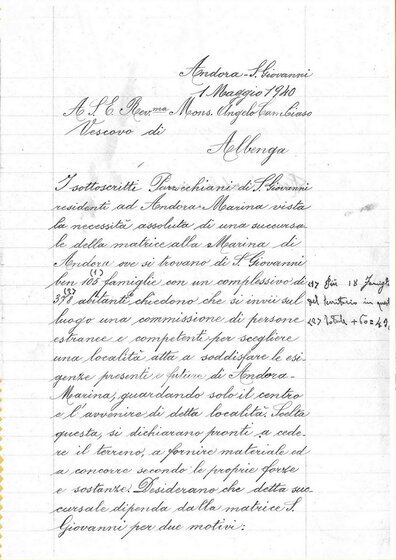 Andora - S. Giovanni
1 Maggio 1940
A S. E. Rev.ma Mons. Angelo Cambiaso
Vescovo di
Albenga
I sottoscritti Parrocchiani di S. Giovanni
residenti ad Andora-Marina vista
la necessità assoluta di una succursa-
le della matrice alla Marina di
Andora ove si trovano di S. Giovanni
ben 105 (1) famiglie con un complessivo di
378 (2) abitanti, chiedono che si invii sul
luogo una commissione di persone
estranee e competenti per scegliere
una località atta a soddisfare le esi-
genze presenti e future di Andora-
Marina, guardando solo il centro
e l'avvenire di detta località. Scelta
questa, si dichiarano pronti a cede-
re il terreno, a fornire materiale ed
a concorre secondo le proprie forze
e sostanze. Desiderano che detta suc-
cursale dipenda dalla matrice S.
Giovanni per due motivi:
(1) Più 18 famigl
(2) totale + 60 =